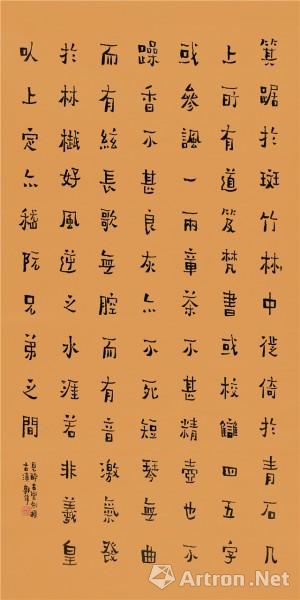 箕踞於斑竹林中徙倚於青石几
上所有道笈梵書或校讎四五字
或參諷一兩章茶不甚精壺也不
躁香不甚良灰亦不死短琴無曲
而有絃長歌無腔而有音激氣發
於林樾好風逆之水涯若非羲皇
以上定亦嵇阮兄弟之間
見醉古堂劍掃
Artron.Net